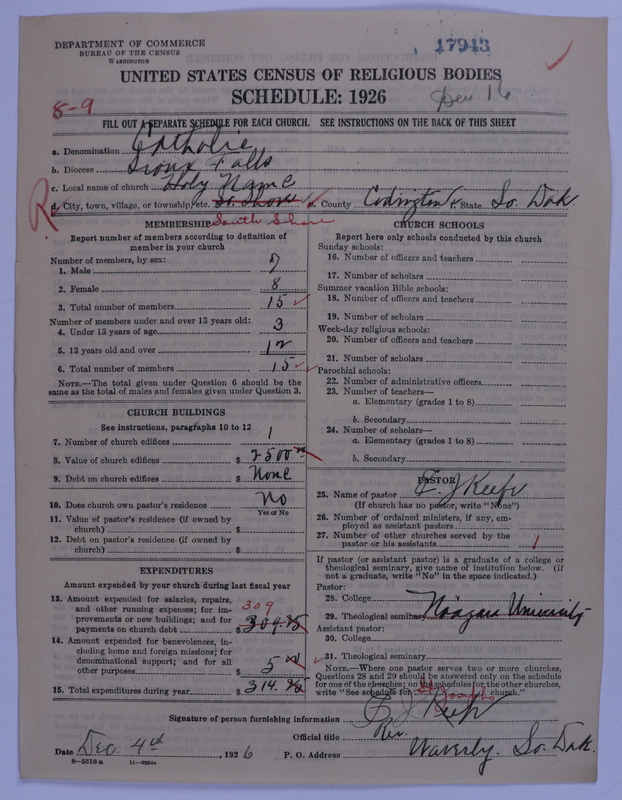 DEPARTMENT OF COMMERCE
BUREAU OF THE CENSUS
WASHINGTON
17943
UNITED STATES CENSUS OF RELIGIOUS BODIES
SCHEDULE: 1926
8-9
Dec 16
FILL OUT A SEPARATE SCHEDULE FOR EACH CHURCH. SEE INSTRUCTIONS ON THE BACK OF THIS SHEET
a. Denomination Catholic
b. Diocese Sioux Falls
c. Local name of church Holy Name
d. City, town, village, or township, etc. So. Shore e. County Codington f. State So. Dak.
South Shore
MEMBERSHIP
Report number of members according to definition of
member in your church
Number of members, by sex:
1. Male 7
2. Female 8
3. Total number of members 15
Number of members under and over 13 years old:
4. Under 13 years of age 3
5. 13 years old and over 12
6. Total number of members 15
NOTE.—The total given under Question 6 should be the
same as the total of males and females given under Question 3.
CHURCH BUILDINGS
See instructions, paragraphs 10 to 12
7. Number of church edifices 1
8. Value of church edifices $ 2500
9. Debt on church edifices $ None
10. Does church own pastor's residence No
Yes or No
11. Value of pastor's residence (if owned by
church) $
12. Debt on pastor's residence (if owned by
church) $
EXPENDITURES
Amount expended by your church during last fiscal year
13. Amount expended for salaries, repairs,
and other running expenses; for im-
provements or new buildings; and for
payments on church debt $ 309.85
309
14. Amount expended for benevolences, in-
cluding home and foreign missions; for
denominational support; and for all
other purposes $ 5
15. Total expenditures during year $ 314.85
CHURCH SCHOOLS
Report here only schools conducted by this church
Sunday schools:
16. Number of officers and teachers
17. Number of scholars
Summer vacation Bible schools:
18. Number of officers and teachers
19. Number of scholars
Week-day religious schools:
20. Number of officers and teachers
21. Number of scholars
Parochial schools:
22. Number of administrative officers
23. Number of teachers—
a. Elementary (grades 1 to 8)
b. Secondary
24. Number of scholars—
a. Elementary (grades 1 to 8)
b. Secondary
PASTOR
25. Name of pastor E. J. Keefe
(If church has no pastor, write "None")
26. Number of ordained ministers, if any, em-
ployed as assistant pastors
27. Number of other churches served by the
pastor or his assistants 1
If pastor (or assistant pastor) is a graduate of a college or
theological seminary, give name of institution below. (If
not a graduate, write "No" in the space indicated.)
Pastor:
28. College
29. Theological seminary Niagara University
Assistant pastor:
30. College
31. Theological seminary
NOTE.—Where one pastor serves two or more churches,
Questions 28 and 29 should be answered only on the schedule
for one of the churches; on the schedules for the other churches,
write "See schedule for St Joseph church."
Signature of person furnishing information E. J. Keefe
Official title Rev.
Date Dec. 4th, 1926 P. O. Address Waverly. So. Dak.
8—5518 a